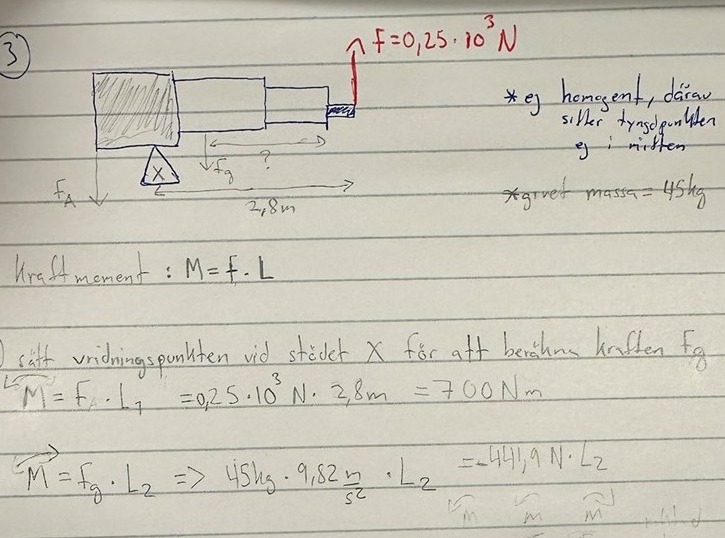 3
f=0,25·10³ N
* ej homogent, därav
sitter tyngdpunkten
ej i mitten
Fg
?
X
FA
2,8m
*givet massa = 45kg
Kraftmoment : M = f · L
) sätt vridningspunkten vid stödet X för att beräkna kraften Fg
M = F · L1 = 0,25·10³ N · 2,8m = 700 Nm
M = fg · L2 => 45kg · 9,82 m/s² · L2 = -441,9 N · L2
M M M